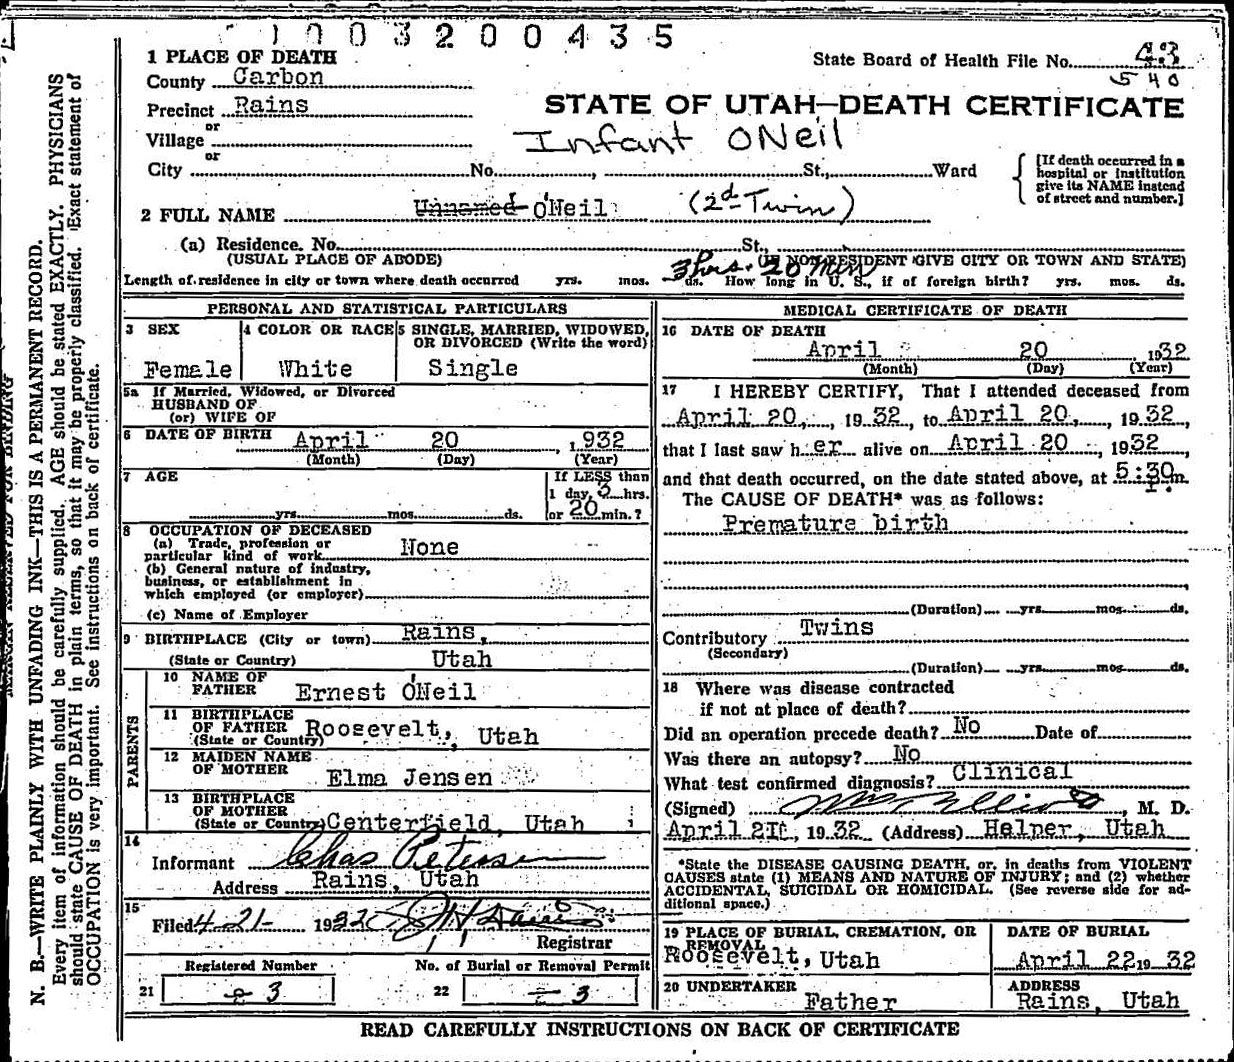 1003200435
1 PLACE OF DEATH
State Board of Health File No. 43
County Carbon
540
Precinct Rains
STATE OF UTAH—DEATH CERTIFICATE
or
Village
Infant ONeil
or
City No. , St., Ward
[If death occurred in a
hospital or institution
give its NAME instead
of street and number.]
2 FULL NAME Unnamed O'Neil (2d Twin)
(a) Residence. No. St.,
(USUAL PLACE OF ABODE) (IF NON-RESIDENT GIVE CITY OR TOWN AND STATE)
3 hrs. 20 min
Length of residence in city or town where death occurred yrs. mos. ds. How long in U. S., if of foreign birth? yrs. mos. ds.
PERSONAL AND STATISTICAL PARTICULARS
3 SEX
Female
4 COLOR OR RACE
White
5 SINGLE, MARRIED, WIDOWED,
OR DIVORCED (Write the word)
Single
5a If Married, Widowed, or Divorced
HUSBAND OF
(or) WIFE OF
6 DATE OF BIRTH April 20 , 1932
(Month) (Day) (Year)
7 AGE
yrs. mos. ds.
If LESS than
1 day, 3 hrs.
or 20 min.?
8 OCCUPATION OF DECEASED
(a) Trade, profession or
particular kind of work None
(b) General nature of industry,
business, or establishment in
which employed (or employer)
(c) Name of Employer
9 BIRTHPLACE (City or town) Rains,
(State or Country) Utah
PARENTS
10 NAME OF
FATHER Ernest O'Neil
11 BIRTHPLACE
OF FATHER
(State or Country) Roosevelt, Utah
12 MAIDEN NAME
OF MOTHER Elma Jensen
13 BIRTHPLACE
OF MOTHER
(State or Country) Centerfield, Utah
14
Informant Chas Petersen
Address Rains, Utah
15
Filed 4-21- 1932
Registrar
Registered Number
21 3
No. of Burial or Removal Permit
22 3
MEDICAL CERTIFICATE OF DEATH
16 DATE OF DEATH
April 20 , 1932
(Month) (Day) (Year)
17 I HEREBY CERTIFY, That I attended deceased from
April 20, , 1932, to April 20, , 1932,
that I last saw her alive on April 20 , 1932,
and that death occurred, on the date stated above, at 5:30 m.
P.
The CAUSE OF DEATH* was as follows:
Premature birth
(Duration) yrs. mos. ds.
Contributory Twins
(Secondary)
(Duration) yrs. mos. ds.
18 Where was disease contracted
if not at place of death?
Did an operation precede death? No Date of
Was there an autopsy? No
What test confirmed diagnosis? Clinical
(Signed) , M. D.
April 21, 1932 (Address) Helper, Utah
*State the DISEASE CAUSING DEATH, or, in deaths from VIOLENT
CAUSES state (1) MEANS AND NATURE OF INJURY; and (2) whether
ACCIDENTAL, SUICIDAL OR HOMICIDAL. (See reverse side for ad-
ditional space.)
19 PLACE OF BURIAL, CREMATION, OR
REMOVAL
Roosevelt, Utah
DATE OF BURIAL
April 22 19 32
20 UNDERTAKER
Father
ADDRESS
Rains, Utah
READ CAREFULLY INSTRUCTIONS ON BACK OF CERTIFICATE
MARGIN RESERVED FOR BINDING
N. B.—WRITE PLAINLY WITH UNFADING INK—THIS IS A PERMANENT RECORD.
Every item of information should be carefully supplied. AGE should be stated EXACTLY. PHYSICIANS
should state CAUSE OF DEATH in plain terms, so that it may be properly classified. Exact statement of
OCCUPATION is very important. See instructions on back of certificate.